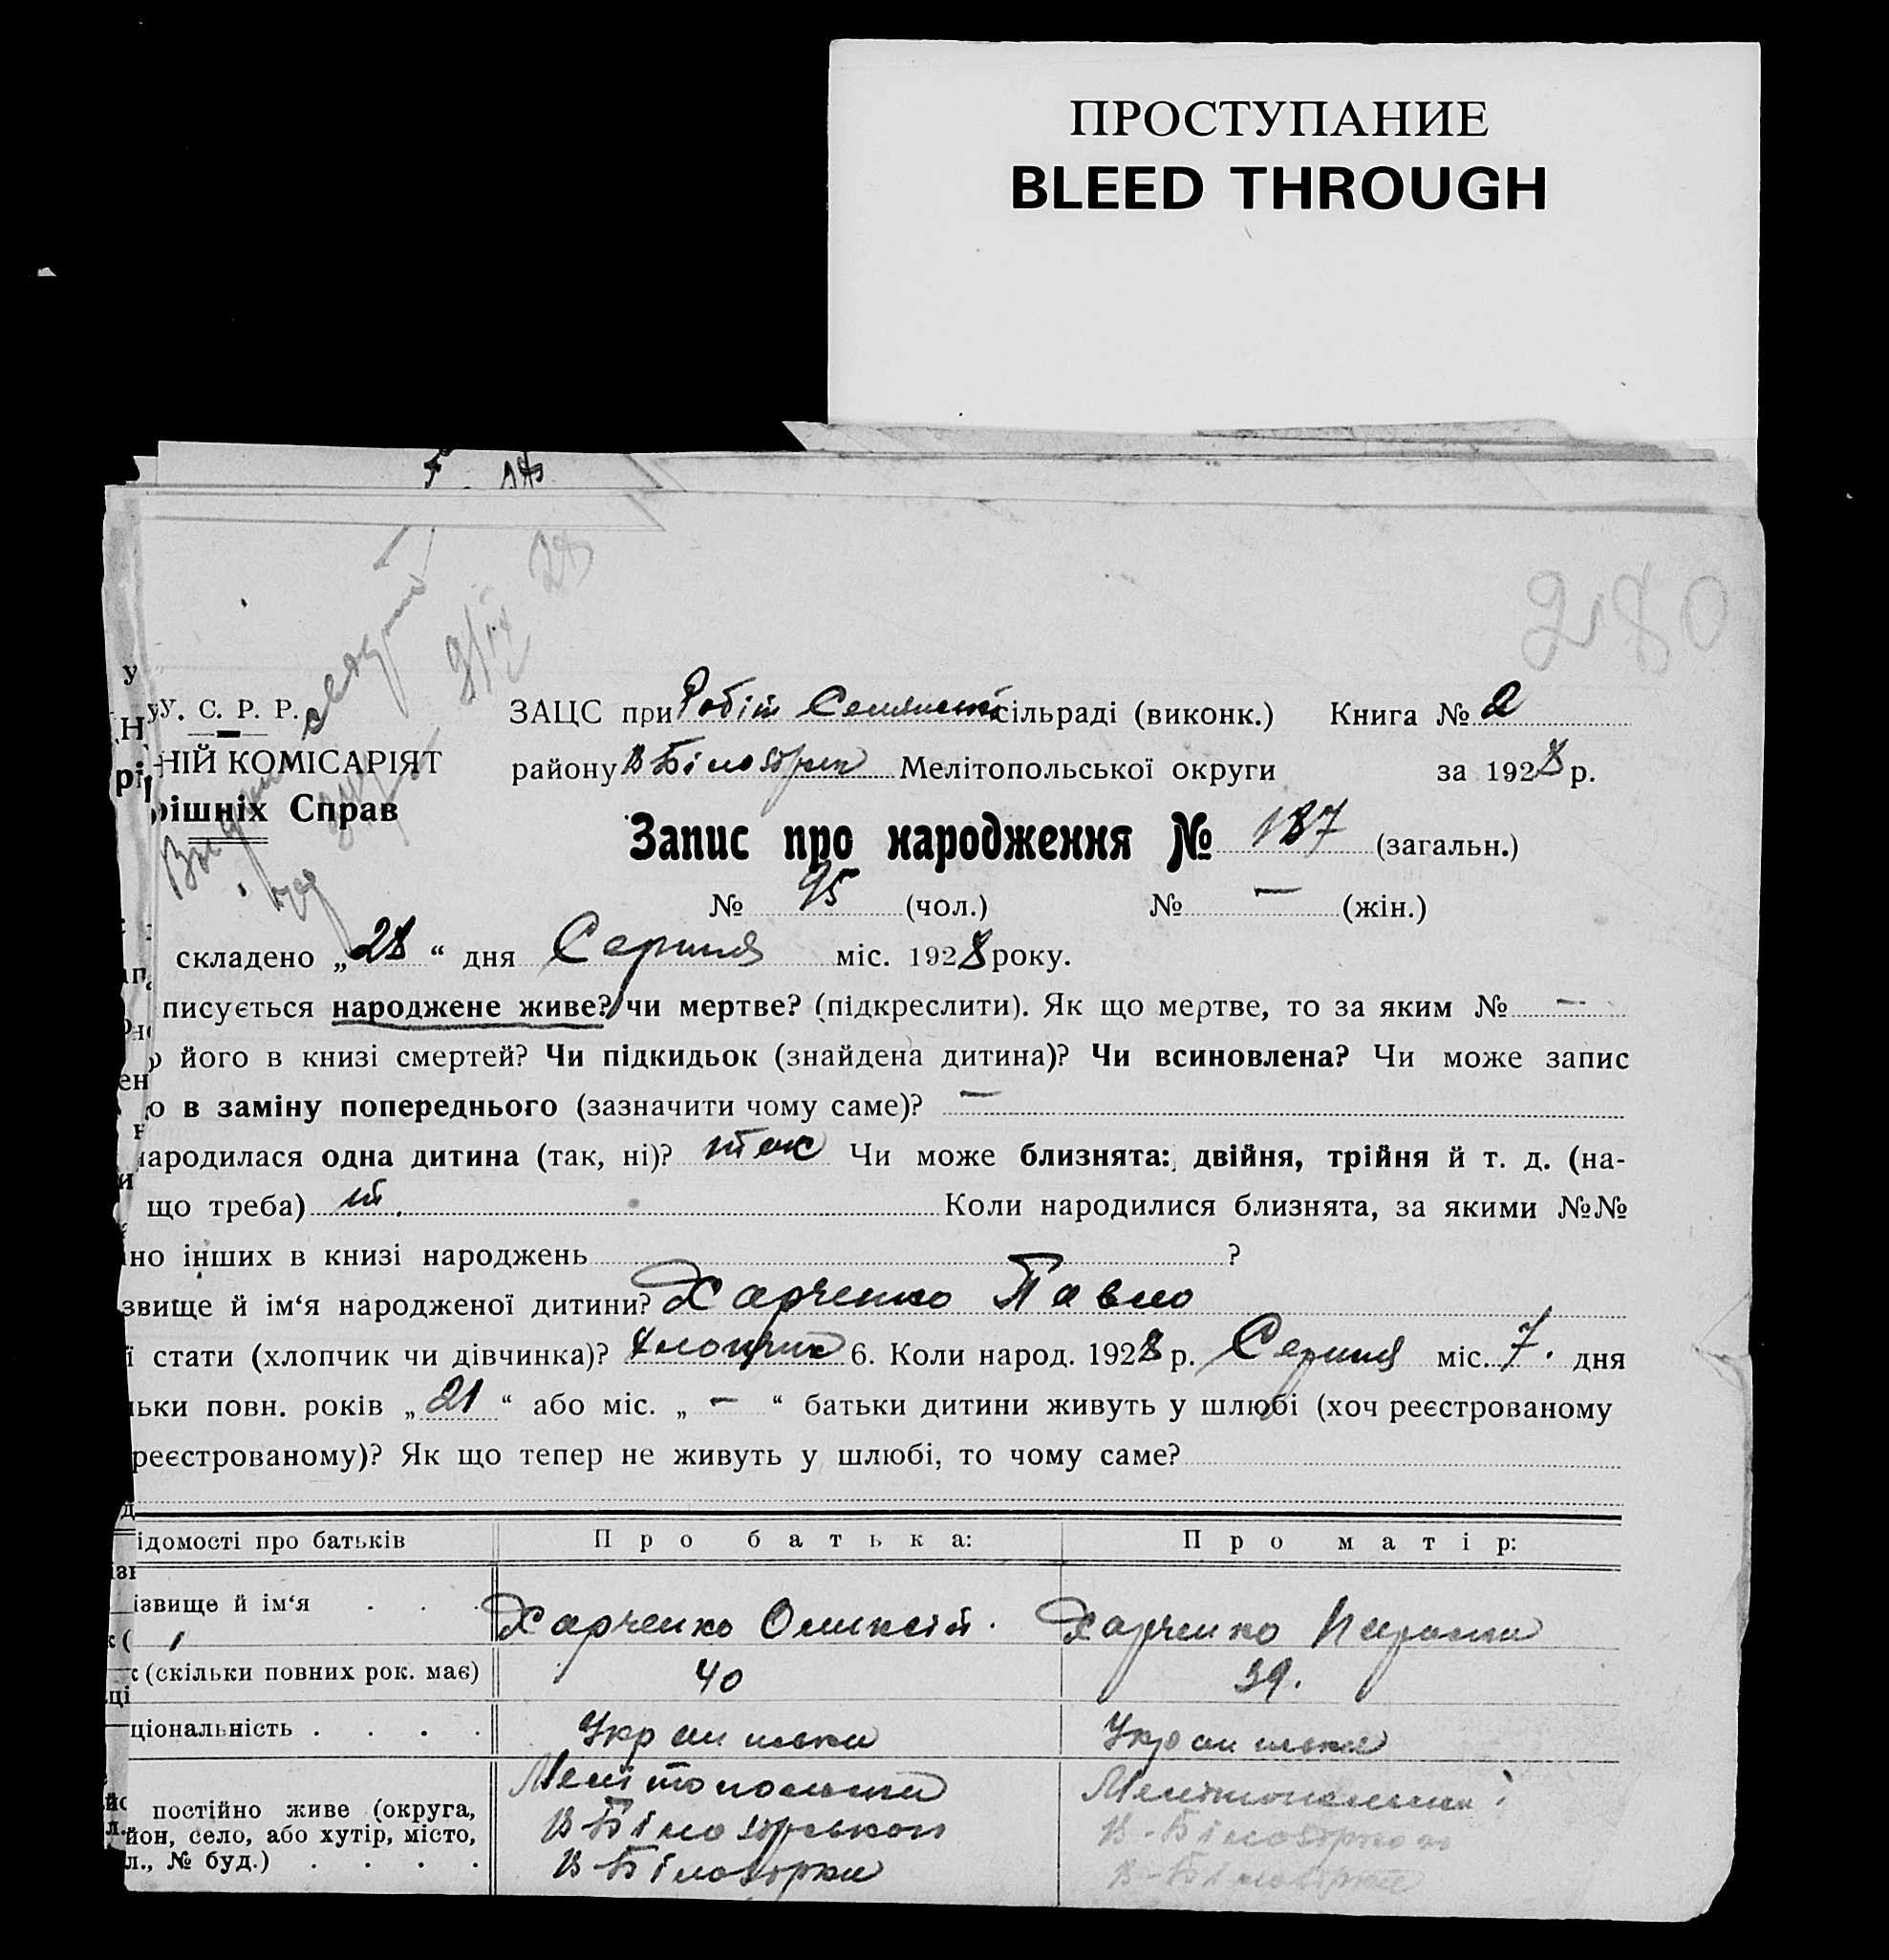 ПРОСТУПАНИЕ
BLEED THROUGH
280
28
У. С. Р. Р.
ЗАЦС при Робіт Селянськ сільраді (виконк.) Книга № 2
НІЙ КОМІСАРІЯТ
району В Білозірки Мелітопольської округи за 1928 р.
рішніх Справ
Запис про народження № 187 (загальн.)
№ 95 (чол.) № — (жін.)
складено „28“ дня Серпня міс. 1928 року.
писується народжене живе? чи мертве? (підкреслити). Як що мертве, то за яким № —
о його в книзі смертей? Чи підкидьок (знайдена дитина)? Чи всиновлена? Чи може запис
о в заміну попереднього (зазначити чому саме)? —
народилася одна дитина (так, ні)? так Чи може близнята: двійня, трійня й т. д. (на-
що треба) Коли народилися близнята, за якими №№
но інших в книзі народжень ?
звище й ім‘я народженої дитини? Харченко Павло
ї стати (хлопчик чи дівчинка)? Хлопчик 6. Коли народ. 1928 р. Серпня міс. 7. дня
льки повн. років „21“ або міс. „—“ батьки дитини живуть у шлюбі (хоч реєстрованому
реєстрованому)? Як що тепер не живуть у шлюбі, то чому саме?
ідомості про батьків Про батька: Про матір:
ізвище й ім‘я . . . Харченко Олексій. Харченко
к (скільки повних рок. має) 40 39.
ціональність . . . . Українська Українська
постійно живе (округа, Мелітопольська Мелітопольська
йон, село, або хутір, місто, В Білозірської В-Білозірської
л., № буд.) . . . . В Білозірка В-Білозірка